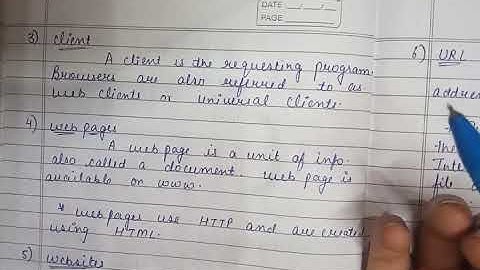 DATE
PAGE
3) client
A client is the requesting program.
Browsers are also referred to as
web clients or universal clients.
4) web pages
A web page is a unit of info.
also called a document. web page is
available on www.
* web pages use HTTP and are created
using HTML.
5) Website
6) URL
addres
the
Inte
file